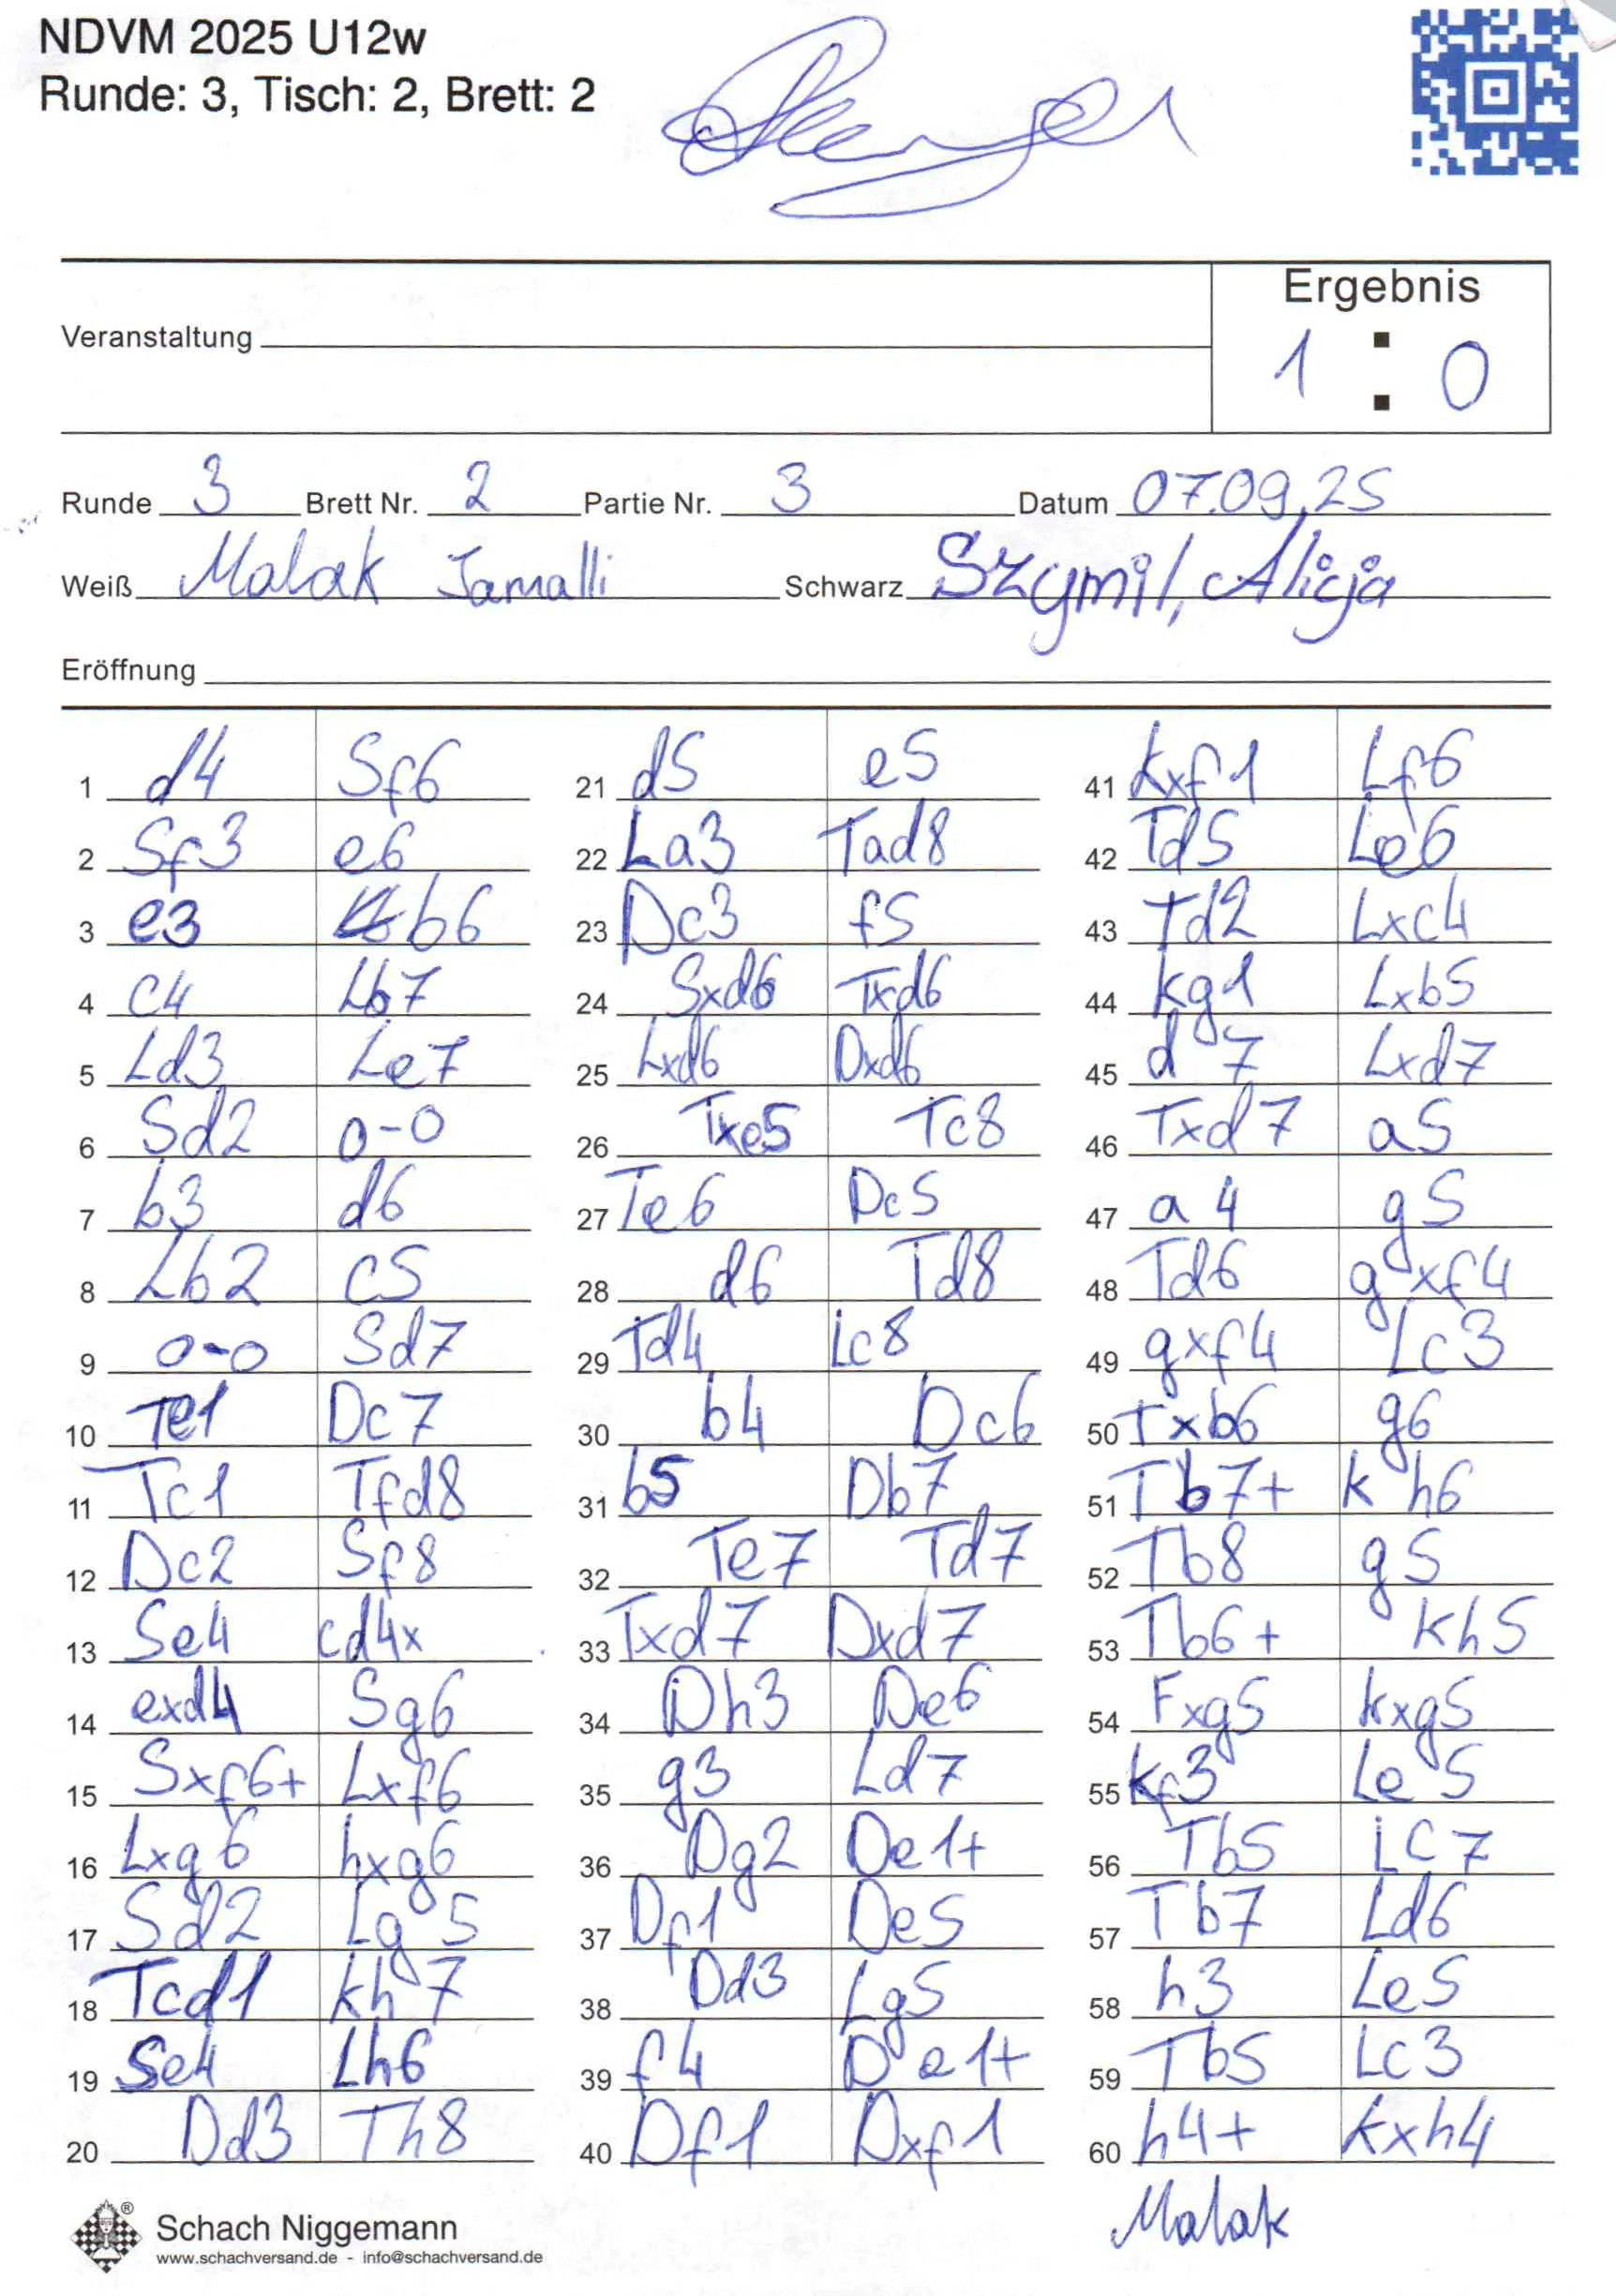 NDVM 2025 U12w
Runde: 3, Tisch: 2, Brett: 2
Ergebnis
Veranstaltung
1 : 0
Runde 3 Brett Nr. 2 Partie Nr. 3 Datum 07.09.25
Weiß Malak Jamalli Schwarz Szymil, Alicja
Eröffnung
1 d4 Sf6
2 Sf3 e6
3 e3 b6
4 c4 Lb7
5 Ld3 Le7
6 Sd2 0-0
7 b3 d6
8 Lb2 c5
9 0-0 Sd7
10 Te1 Dc7
11 Tc1 Tfd8
12 Dc2 Sf8
13 Se4 cd4x
14 exd4 Sg6
15 Sxf6+ Lxf6
16 Lxg6 hxg6
17 Sd2 Lg5
18 Tcd1 Kh7
19 Se4 Lh6
20 Dd3 Th8
21 d5 e5
22 La3 Tad8
23 Dc3 f5
24 Sxd6 Txd6
25 Lxd6 Dxd6
26 Txe5 Tc8
27 Te6 Dc5
28 d6 Td8
29 Td4 Lc8
30 b4 Dc6
31 b5 Db7
32 Te7 Td7
33 Txd7 Dxd7
34 Dh3 De6
35 g3 Ld7
36 Dg2 De1+
37 Df1 De5
38 Dd3 Lg5
39 f4 De1+
40 Df1 Dxf1
41 Kxf1 Lf6
42 Td5 Le6
43 Td2 Lxc4
44 Kg1 Lxb5
45 d7 Lxd7
46 Txd7 a5
47 a4 g5
48 Td6 gxf4
49 gxf4 Lc3
50 Txb6 g6
51 Tb7+ Kh6
52 Tb8 g5
53 Tb6+ Kh5
54 Fxg5 Kxg5
55 Kf3 Le5
56 Tb5 Lc7
57 Tb7 Ld6
58 h3 Le5
59 Tb5 Lc3
60 h4+ Kxh4
Malak
®
Schach Niggemann
www.schachversand.de - info@schachversand.de